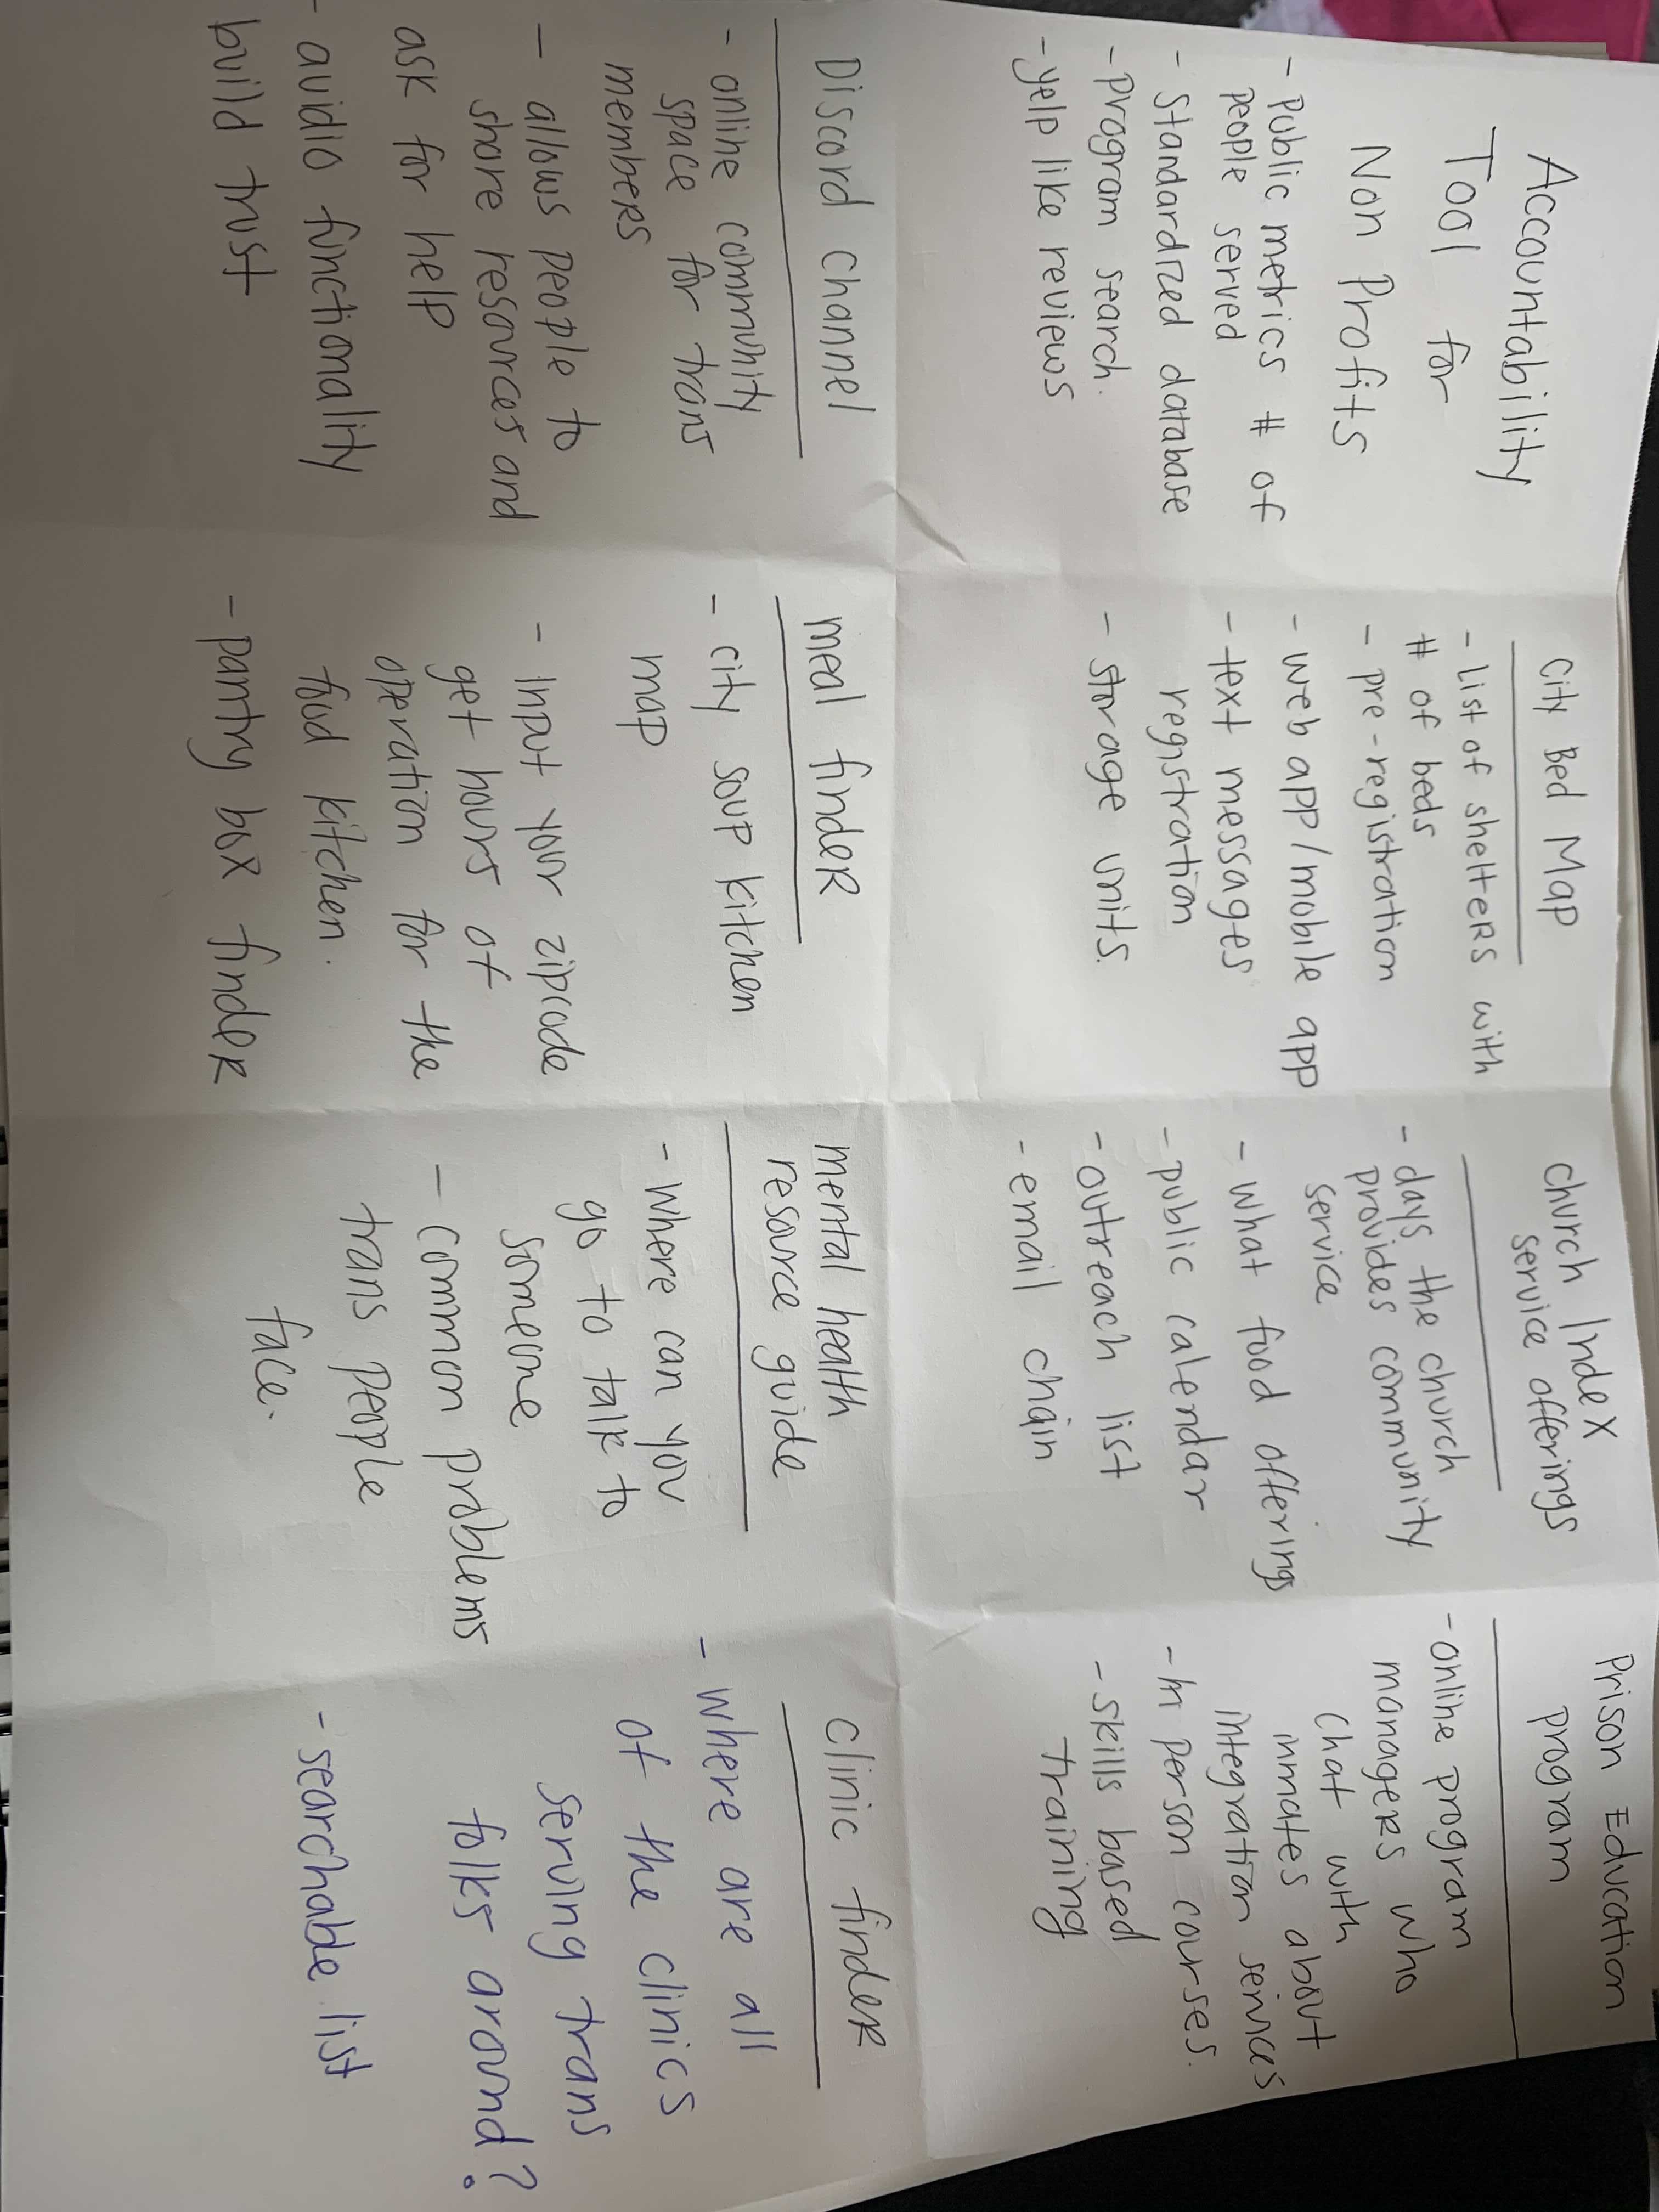 Accountability
Tool for
Non Profits
- Public metrics # of
people served
- Standardized database
- program search.
- yelp like reviews
City Bed Map
- list of shelters with
# of beds
- pre-registration
- web app/mobile app
- text messages
registration
- storage units.
Church Index
service offerings
- days the church
provides community
service
- what food offerings
- public calendar
- outreach list
- email chain
Prison Education
program
- online program
managers who
chat with
inmates about
integration services
- In person courses.
- skills based
training
Discord channel
- online community
space for trans
members
- allows people to
share resources and
ask for help
- avidio functionality
build trust
meal finder
- city soup kitchen
map
- Input your zipcode
get hours of
operation for the
food kitchen.
- pantry box finder
mental health
resource guide
- where can you
go to talk to
someone
- common problems
trans people
face.
clinic finder
- where are all
of the clinics
serving trans
folks around?
- searchable list